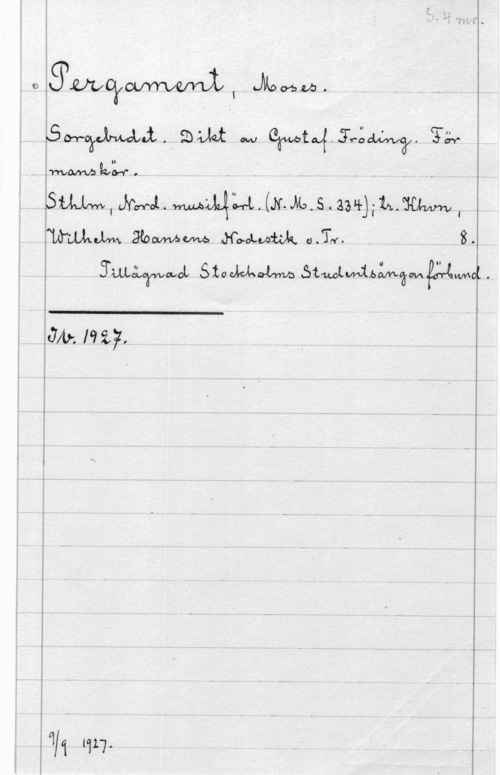 S. 4 mr.
Pergament, Moses.
Sorgebudet. Dikt av Gustaf Fröding. För
manskör.
Sthlm, Nord. musikförl. (N. M. S. 334); tr. Khvn,
Wilhelm Hansens Nodestik o. Tr. 8.
Tillägnad Stockholms Studentsångarförbund.
Ib. 1927.
9/9 1927.